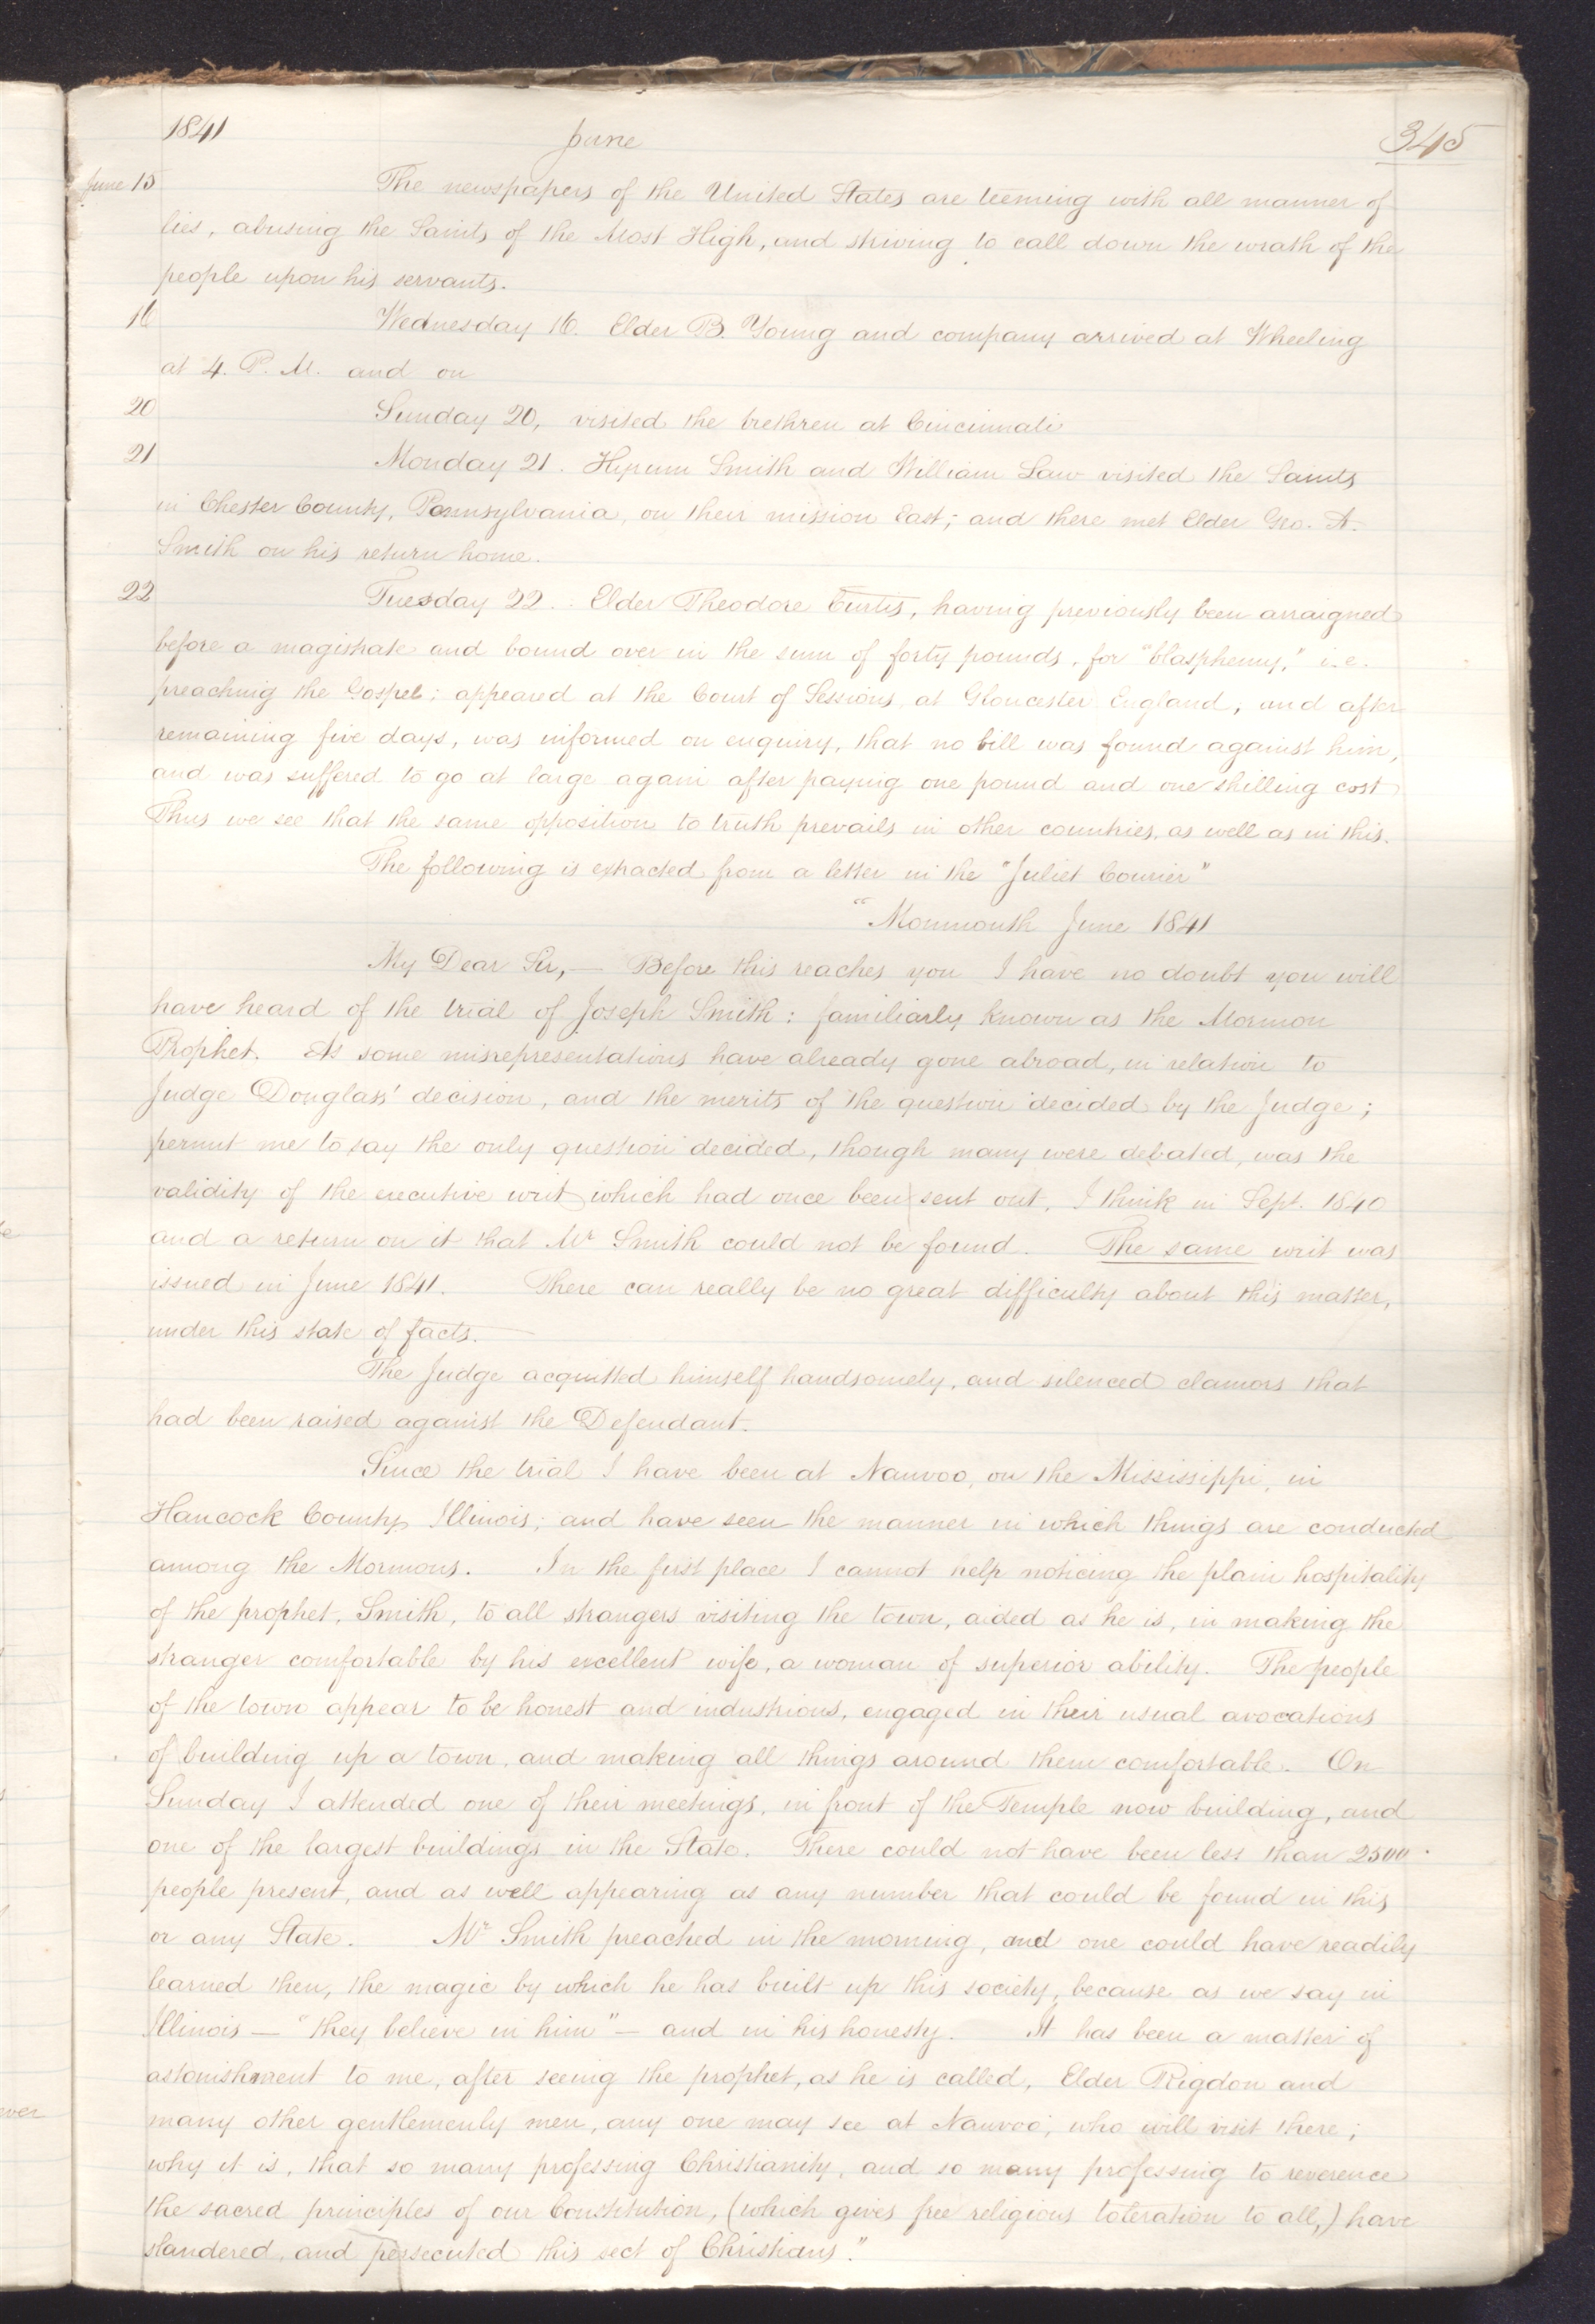 1841 June 345
June 15 The newspapers of the United States are teeming with all manner of
lies, abusing the Saints of the Most High, and striving to call down the wrath of the
people upon his servants.
16 Wednesday 16. Elder B. Young and company arrived at Wheeling
at 4. P. M. and on
20 Sunday 20, visited the brethren at Cincinnati
21 Monday 21. Hyrum Smith and William Law visited the Saints
in Chester County, Pennsylvania, on their mission East; and there met Elder Geo. A.
Smith on his return home.
22 Tuesday 22. Elder Theodore Curtis, having previously been arraigned
before a magistrate and bound over in the sum of forty pounds, for "blasphemy," i.e.
preaching the Gospel; appeared at the Court of Sessions, at Gloucester England, and after
remaining five days, was informed on enquiry, that no bill was found against him,
and was suffered to go at large again after paying one pound and one shilling cost
Thus we see that the same opposition to truth prevails in other countries, as well as in this.
The following is extracted from a letter in the "Juliet Courier"
"Monmouth June 1841
My Dear Sir,— Before this reaches you I have no doubt you will
have heard of the trial of Joseph Smith: familiarly known as the Mormon
Prophet. As some misrepresentations have already gone abroad, in relation to
Judge Douglass' decision, and the merits of the question decided by the Judge;
permit me to say the only question decided, though many were debated, was the
validity of the executive writ which had once been sent out, I think in Sept. 1840
and a return on it that Mr Smith could not be found. The same writ was
issued in June 1841. There can really be no great difficulty about this matter,
under this state of facts.
The Judge acquitted himself handsomely, and silenced clamors that
had been raised against the Defendant.
Since the trial I have been at Nauvoo, on the Mississippi, in
Hancock County Illinois; and have seen the manner in which things are conducted
among the Mormons. In the first place I cannot help noticing the plain hospitality
of the prophet, Smith, to all strangers visiting the town, aided as he is, in making the
stranger comfortable by his excellent wife, a woman of superior ability. The people
of the town appear to be honest and industrious, engaged in their usual avocations
of building up a town, and making all things around them comfortable. On
Sunday I attended one of their meetings, in front of the Temple now building, and
one of the largest buildings in the State. There could not have been less than 2500
people present, and as well appearing as any number that could be found in this
or any State. Mr Smith preached in the morning, and one could have readily
learned then, the magic by which he has built up this society, because as we say in
Illinois — "they believe in him" — and in his honesty. It has been a matter of
astonishment to me, after seeing the prophet, as he is called, Elder Rigdon and
many other gentlemenly men, any one may see at Nauvoo, who will visit there;
why it is, that so many professing Christianity, and so many professing to reverence
the sacred principles of our Constitution, (which gives free religious toleration to all,) have
slandered, and persecuted this sect of Christians."